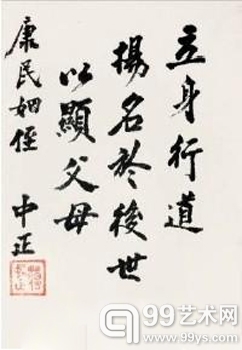 立身行道
揚名於後世
以顯父母
康民姻侄
中正
99艺术网
www.99ys.com